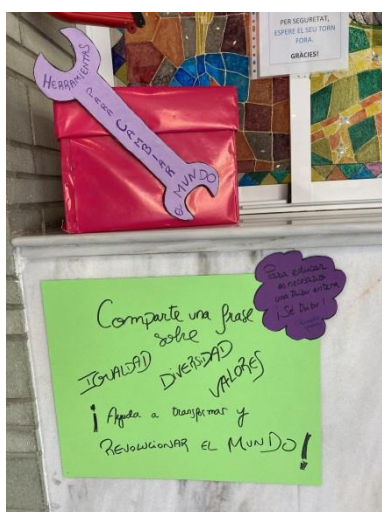 PER SEGURETAT,
ESPERE EL SEU TORN
FORA.
GRÀCIES!
HERRAMIENTAS
PARA
CAMBIAR
EL MUNDO
Para educar
es necesaria
una tribu entera
¡Sé tribu!
Comparte una frase
sobre
IGUALDAD
DIVERSIDAD
VALORES
¡Ayuda a transformar y
REVOLUCIONAR EL MUNDO!